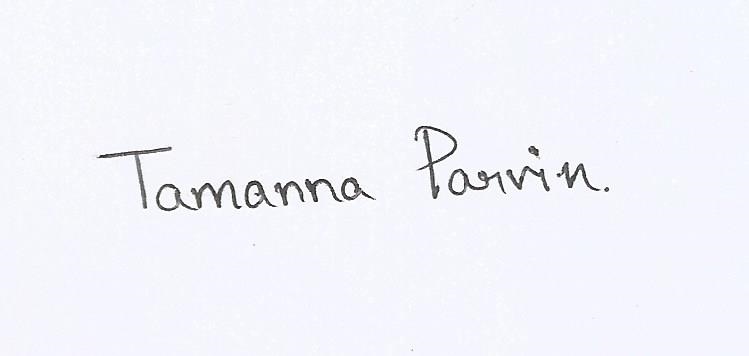 Tamanna Parvin.